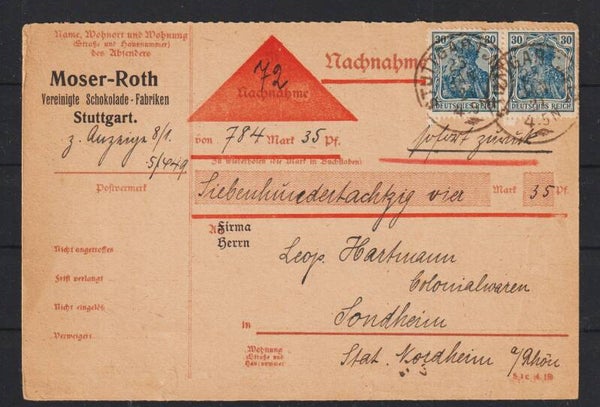 Name, Wohnort und Wohnung
(Straße und Hausnummer)
des Absenders
Moser-Roth
Vereinigte Schokolade-Fabriken
Stuttgart.
z. Anzeige 8/1.
5/449.
Postvermerk
Nicht angetroffen
Frist verlangt
Nicht eingelöst
Verweigert
72
Nachnahme
Nachnahme
30 30
DEUTSCHES REICH
30 30
DEUTSCHES REICH
STUTTGART
von 784 Mark 35 Pf.
sofort zurück
Zu wiederholen (die Mark in Buchstaben)
Siebenhundertachtzig vier Mark 35 Pf.
An Firma
Herrn
Leop. Hartmann
Colonialwaren
in Sondheim
Wohnung
(Straße und
Hausnummer)
Stat. Nordheim a/Rhön